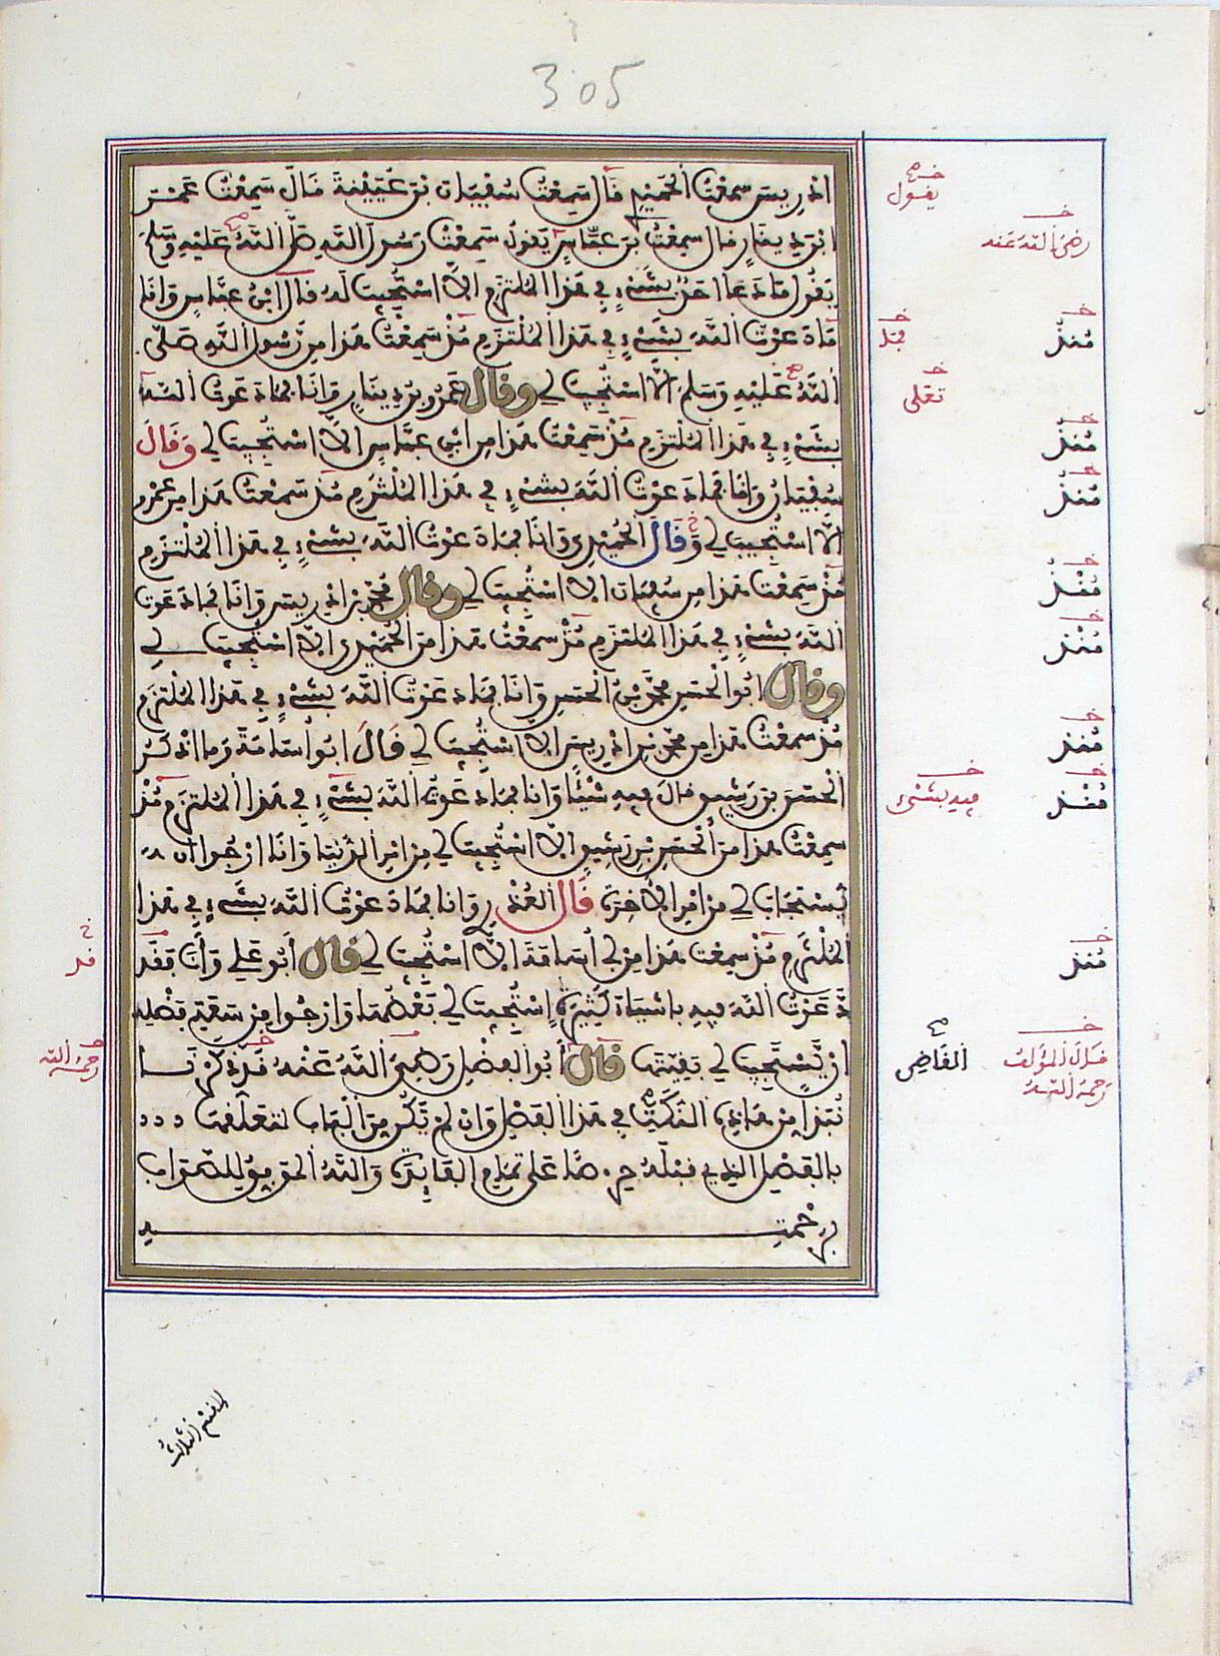 305
ادريس سمعت الحميدي قال سمعت سفيان بن عيينة قال سمعت عمر
ابن دينار قال سمعت بن عباس يقول سمعت رسول الله صلى الله عليه وسلم
يقول ما دعا احد بشيء في هذا الملتزم الا استجيب له قال ابن عباس وانا
ما دعوت الله بشيء في هذا الملتزم مذ سمعت هذا من رسول الله صلى
الله عليه وسلم الا استجيب لي وقال عمرو بن دينار وانا فما دعوت الله
بشيء في هذا الملتزم مذ سمعت هذا من ابن عباس الا استجيب لي وقال
سفيان وانا فما دعوت الله بشيء في هذا الملتزم مذ سمعت هذا من عمرو
الا استجيب لي وقال الحميدي وانا فما دعوت الله بشيء في هذا الملتزم
مذ سمعت هذا من سفيان الا استجيب لي وقال محمد بن ادريس وانا فما دعوت
الله بشيء في هذا الملتزم مذ سمعت هذا من الحميدي الا استجيب لي
وقال ابو الحسن محمد بن الحسن وانا فما دعوت الله بشيء في هذا الملتزم
مذ سمعت هذا من محمد بن ادريس الا استجيب لي قال ابو اسامة وما اذكر
الحسن بن رشيق قال فيه شيئا وانا فما دعوت الله بشيء في هذا الملتزم مذ
سمعت هذا من الحسن بن رشيق الا استجيب لي من امر الدنيا وانا ارجوا ان
يستجاب لي من امر الاخرة قال العذري وانا فما دعوت الله بشيء في هذا
الملتزم مذ سمعت هذا من ابي اسامة الا استجيب لي قال ابو علي وانا فقد
دعوت الله فيه باشياء كثيرة استجيب لي بعضها وارجوا من سعة فضله
ان يستجيب لي بقيتها قال ابو الفضل رضي الله عنه قد ذكرنا
نبذا من هاذه النكت في هذا الفصل وان لم تكن من الباب لتعلقها
بالفصل الذي قبله حرصا على تمام الفايدة والله الموفق للصواب
برحمته
يقول
رضي الله عنه
منذ
قد
تعلى
منذ
منذ
منذ
منذ
منذ
منذ
فيه بشيء
منذ
قد
قال المؤلف
رحمه الله
القاضي
رحمه الله
القسم الثالث